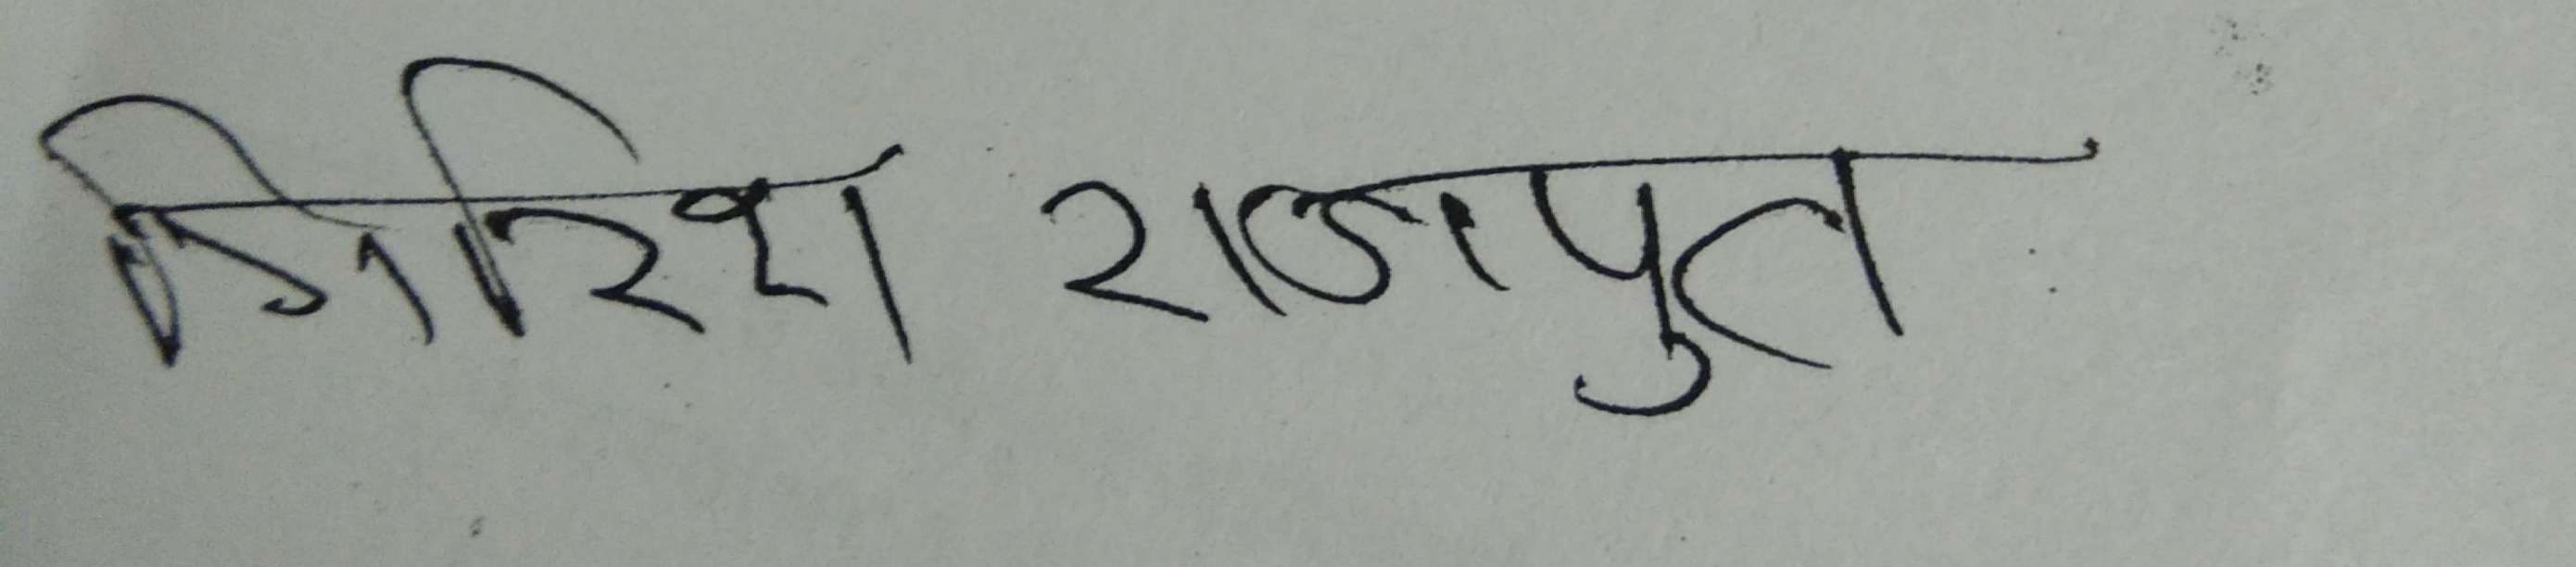 गिरिश राजपुत